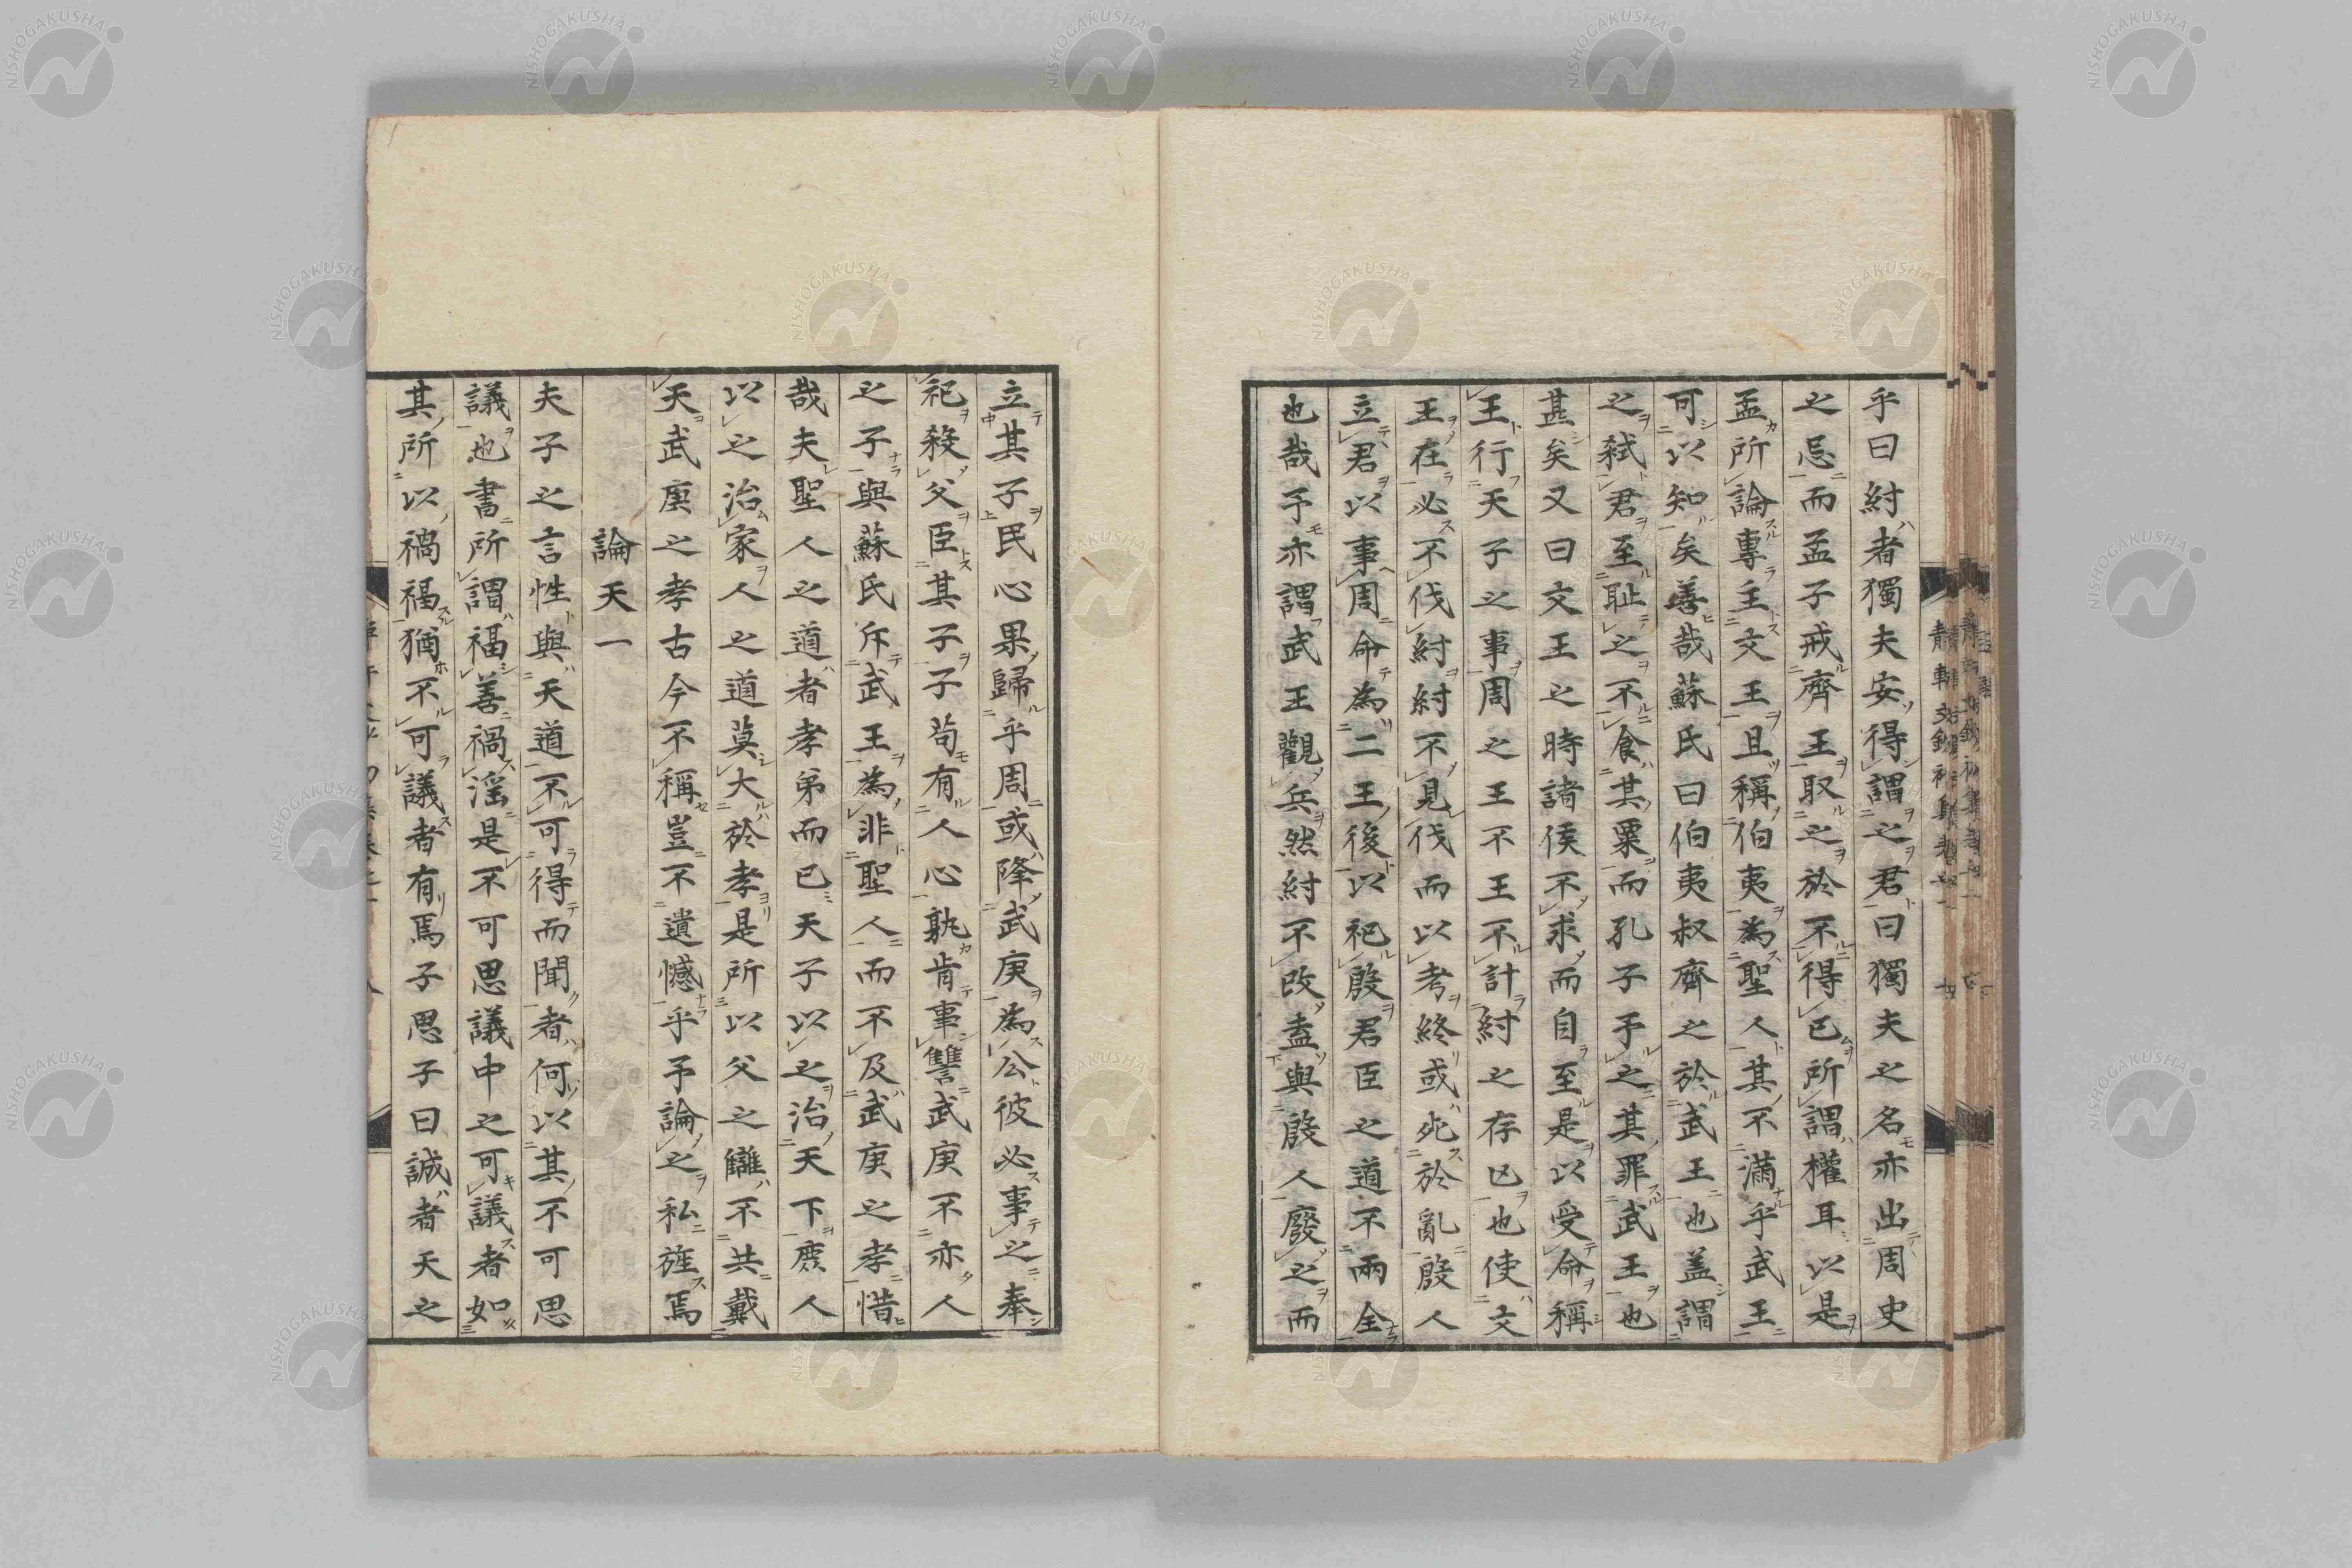 乎曰紂者獨夫安得謂之君曰獨夫之名亦出周史
之忌而孟子戒齊王取之於不得已所謂權耳以是
孟所論專主文王且稱伯夷為聖人其不滿乎武王
可以知矣善哉蘇氏曰伯夷叔齊之於武王也蓋謂
之弒君至恥之不食其粟而孔子予之其罪武王也
甚矣又曰文王之時諸侯不求而自至是以受命稱
王行天子之事周之王不王不計紂之存亡也使文
王在必不伐紂紂不見伐而以考終或死於亂殷人
立君以事周命為二王後以祀殷君臣之道不兩全
也哉予亦謂武王觀兵然紂不改盍與殷人廢之而
立其子民心果歸乎周或降武庚為公彼必事之奉
祀殺父臣其子子苟有人心孰肯事讐武庚不亦人
之子與蘇氏斥武王為非聖人而不及武庚之孝惜
哉夫聖人之道者孝弟而已天子以之治天下庶人
以之治家人之道莫大於孝是所以父之讎不共戴
天武庚之孝古今不稱豈不遺憾乎予論之私旌焉
論天一
夫子之言性與天道不可得而聞者何以其不可思
議也書所謂福善禍淫是不可思議中之可議者如
其所以禍福猶不可議者有焉子思子曰誠者天之
NISHOGAKUSHA